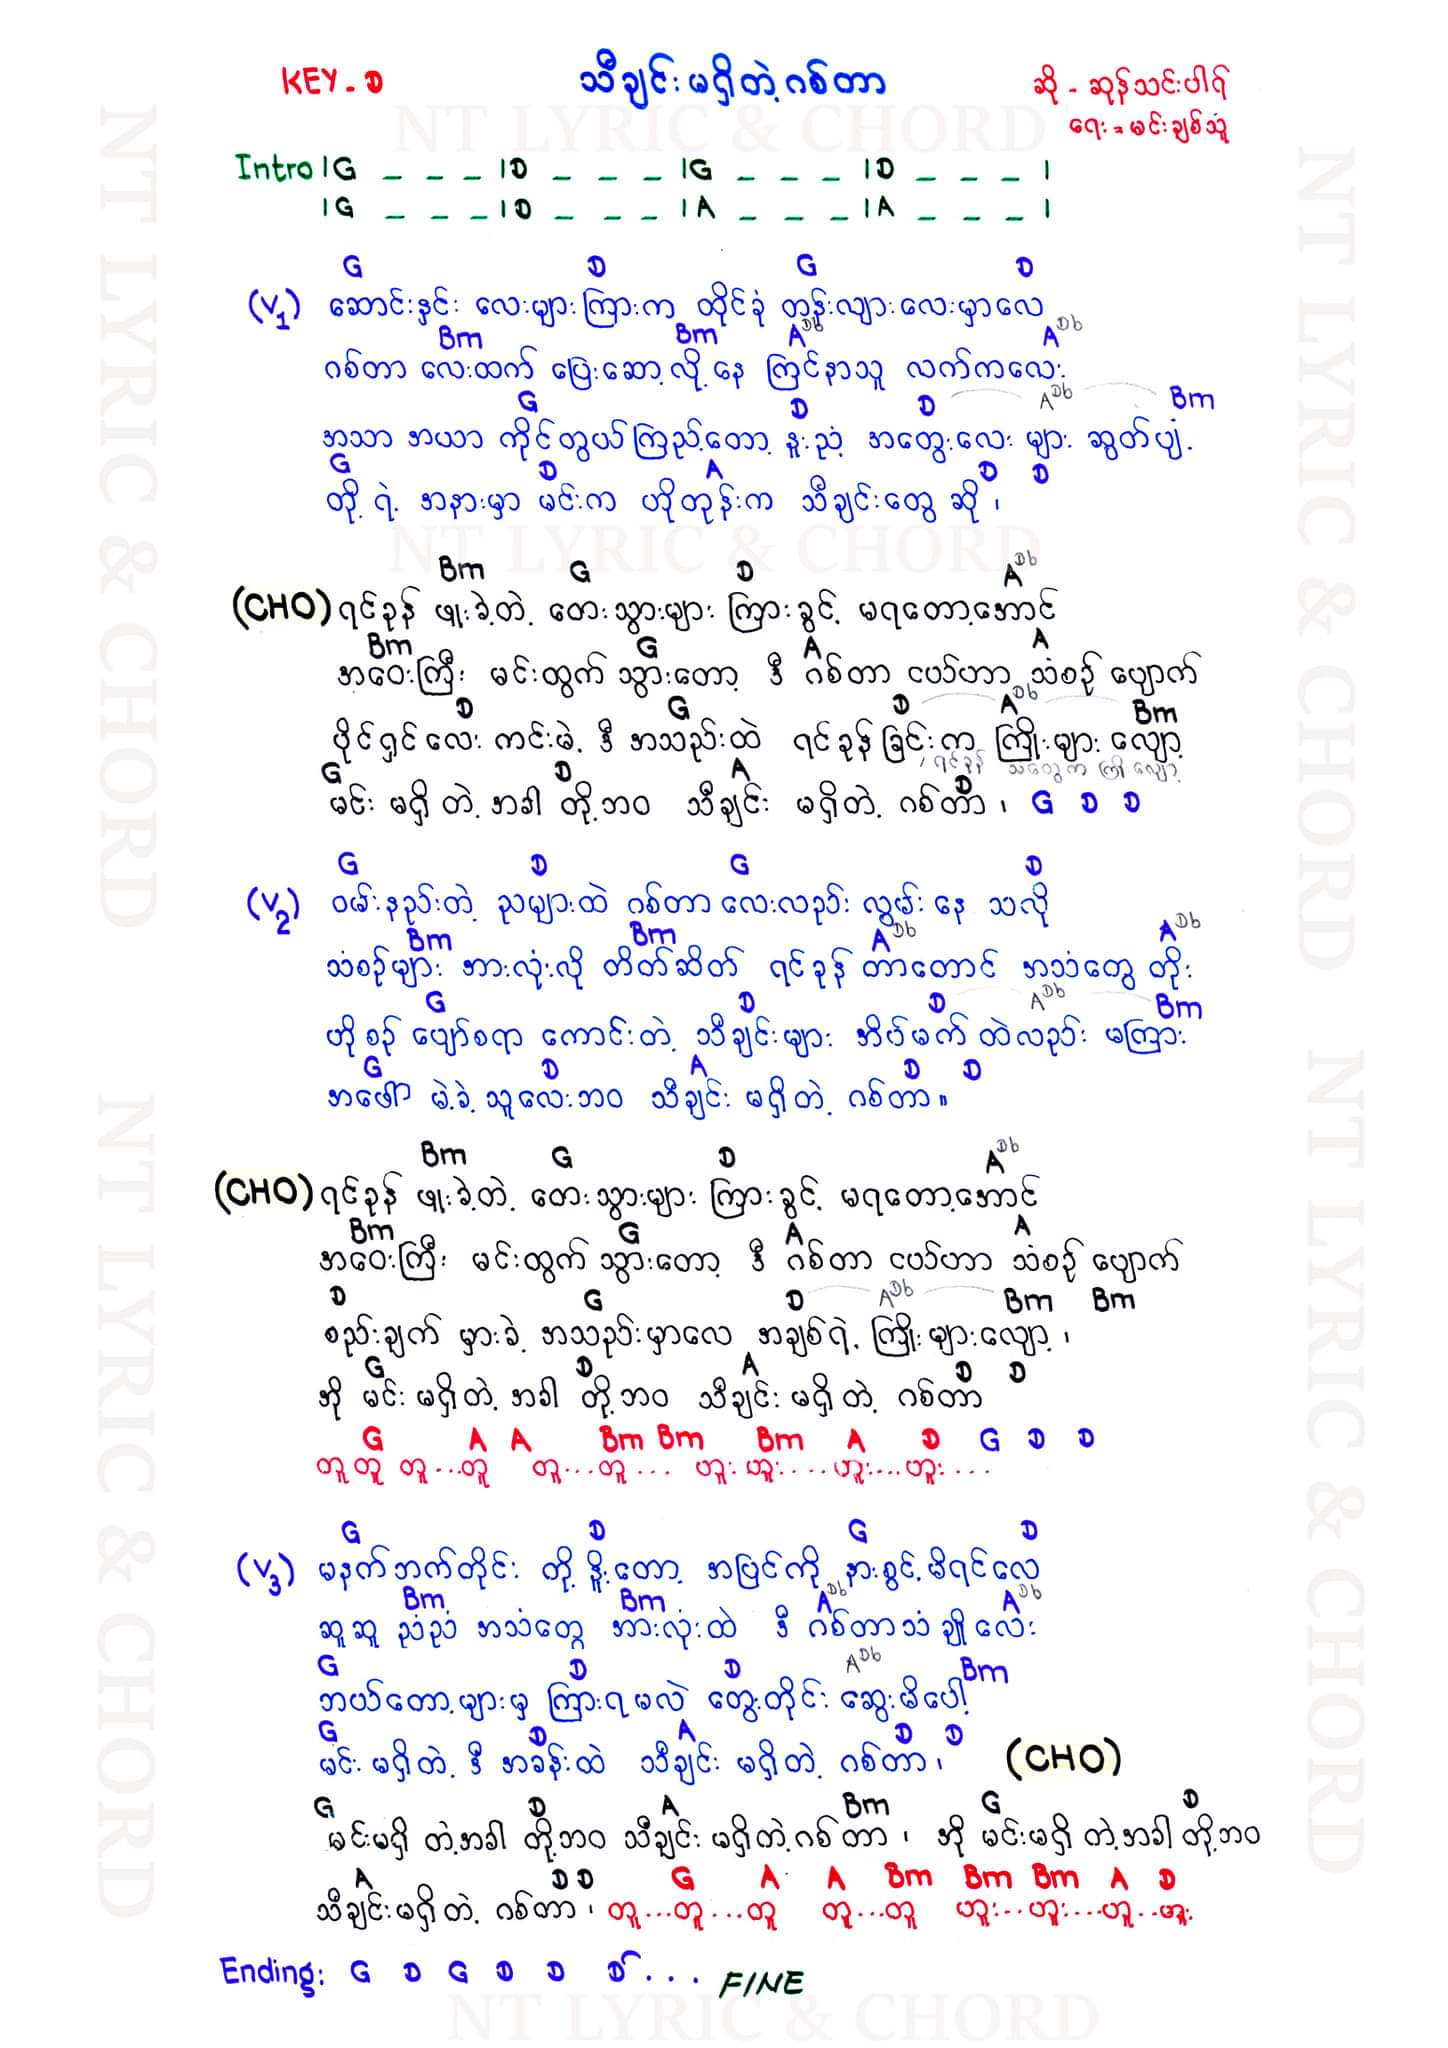 KEY - D
သီချင်းမရှိတဲ့ဂစ်တာ
ဆို - ဆုန်သင်းပါရ်
ရေး = မင်းချစ်သူ
NT LYRIC & CHORD
Intro |G _ _ _ |D _ _ _ |G _ _ _ |D _ _ _ |
|G _ _ _ |D _ _ _ |A _ _ _ |A _ _ _ |
G D G D
(V1) ဆောင်းနှင်း လေးများကြားက ထိုင်ခုံ တန်းလျားလေးမှာလေ
Bm Bm A Db A Db
ဂစ်တာ လေးထက် ပြေးဆော့လို့နေ ကြင်နာသူ လက်ကလေး
G D D A Db Bm
အသာ အယာ ကိုင်တွယ်ကြည့်တော့ နူးညံ့ အတွေးလေး များ ဆွတ်ပျံ့
G D A D D
တို့ ရဲ့ အနားမှာ မင်းက ဟိုတုန်းက သီချင်းတွေ ဆို ၊
NT LYRIC & CHORD
Bm G D A Db
(CHO) ရင်ခုန် ဖူးခဲ့တဲ့ တေးသွားများ ကြားခွင့် မရတော့အောင်
Bm G A A
အဝေးကြီး မင်းထွက် သွားတော့ ဒီ ဂစ်တာ ငယ်ဟာ သံစဉ် ပျောက်
D G D A Db Bm
ပိုင်ရှင်လေး ကင်းမဲ့ ဒီ အသည်းထဲ ရင်ခုန်ခြင်းက ကြိုးများ လျော့
ရင်ခုန် သံတွေက ကြိုး လျော့
G D A D
မင်း မရှိ တဲ့ အခါ တို့ဘဝ သီချင်း မရှိတဲ့ ဂစ်တာ ၊ G D D
G D G D
(V2) ဝမ်းနည်းတဲ့ ညများထဲ ဂစ်တာ လေးလည်း လွမ်း နေ သလို
Bm Bm A Db A Db
သံစဉ်များ အားလုံးလို တိတ်ဆိတ် ရင်ခုန် တာတောင် အသံတွေ တိုး
G D D A Db Bm
ဟိုစဉ် ပျော်စရာ ကောင်းတဲ့ သီချင်းများ အိပ်မက် ထဲလည်း မကြား
G D A D D
အဖော် မဲ့ခဲ့ သူလေးဘဝ သီချင်း မရှိတဲ့ ဂစ်တာ။
Bm G D A Db
(CHO) ရင်ခုန် ဖူးခဲ့တဲ့ တေးသွားများ ကြားခွင့် မရတော့အောင်
Bm G A A
အဝေးကြီး မင်းထွက် သွားတော့ ဒီ ဂစ်တာ ငယ်ဟာ သံစဉ် ပျောက်
D G D A Db Bm Bm
စည်းချက် မှားခဲ့ အသည်းမှာလေ အချစ်ရဲ့ ကြိုးများလျော့ ၊
G D A D D
အို မင်း မရှိတဲ့ အခါ တို့ဘဝ သီချင်း မရှိတဲ့ ဂစ်တာ
G A A Bm Bm Bm A D G D D
တူ တူ တူ...တူ တူ...တူ... ဟူး ဟူး.... ဟူး... ဟူး....
G D G D
(V3) မနက်ဘက်တိုင်း တို့ နိူးတော့ အပြင်ကို နားစွင့်မိရင်လေ
Bm Bm A Db A Db
ဆူဆူ ညံညံ အသံတွေ အားလုံးထဲ ဒီ ဂစ်တာသံ ချိုလေး
G D D A Db Bm
ဘယ်တော့များမှ ကြားရမလဲ တွေးတိုင်း ဆွေးမိပေါ့
G D A D D
မင်း မရှိတဲ့ ဒီ အခန်းထဲ သီချင်း မရှိတဲ့ ဂစ်တာ ၊ (CHO)
G D A Bm G D
မင်းမရှိ တဲ့အခါ တို့ဘဝ သီချင်း မရှိတဲ့ဂစ်တာ ၊ အို မင်းမရှိ တဲ့အခါ တို့ဘဝ
A D D G A A Bm Bm Bm A D
သီချင်းမရှိတဲ့ ဂစ်တာ ၊ တူ...တူ...တူ တူ...တူ ဟူး...ဟူး...ဟူ..ဟူး
Ending: G D G D D D... FINE
NT LYRIC & CHORD
NT LYRIC & CHORD
NT LYRIC & CHORD
NT LYRIC & CHORD
NT LYRIC & CHORD